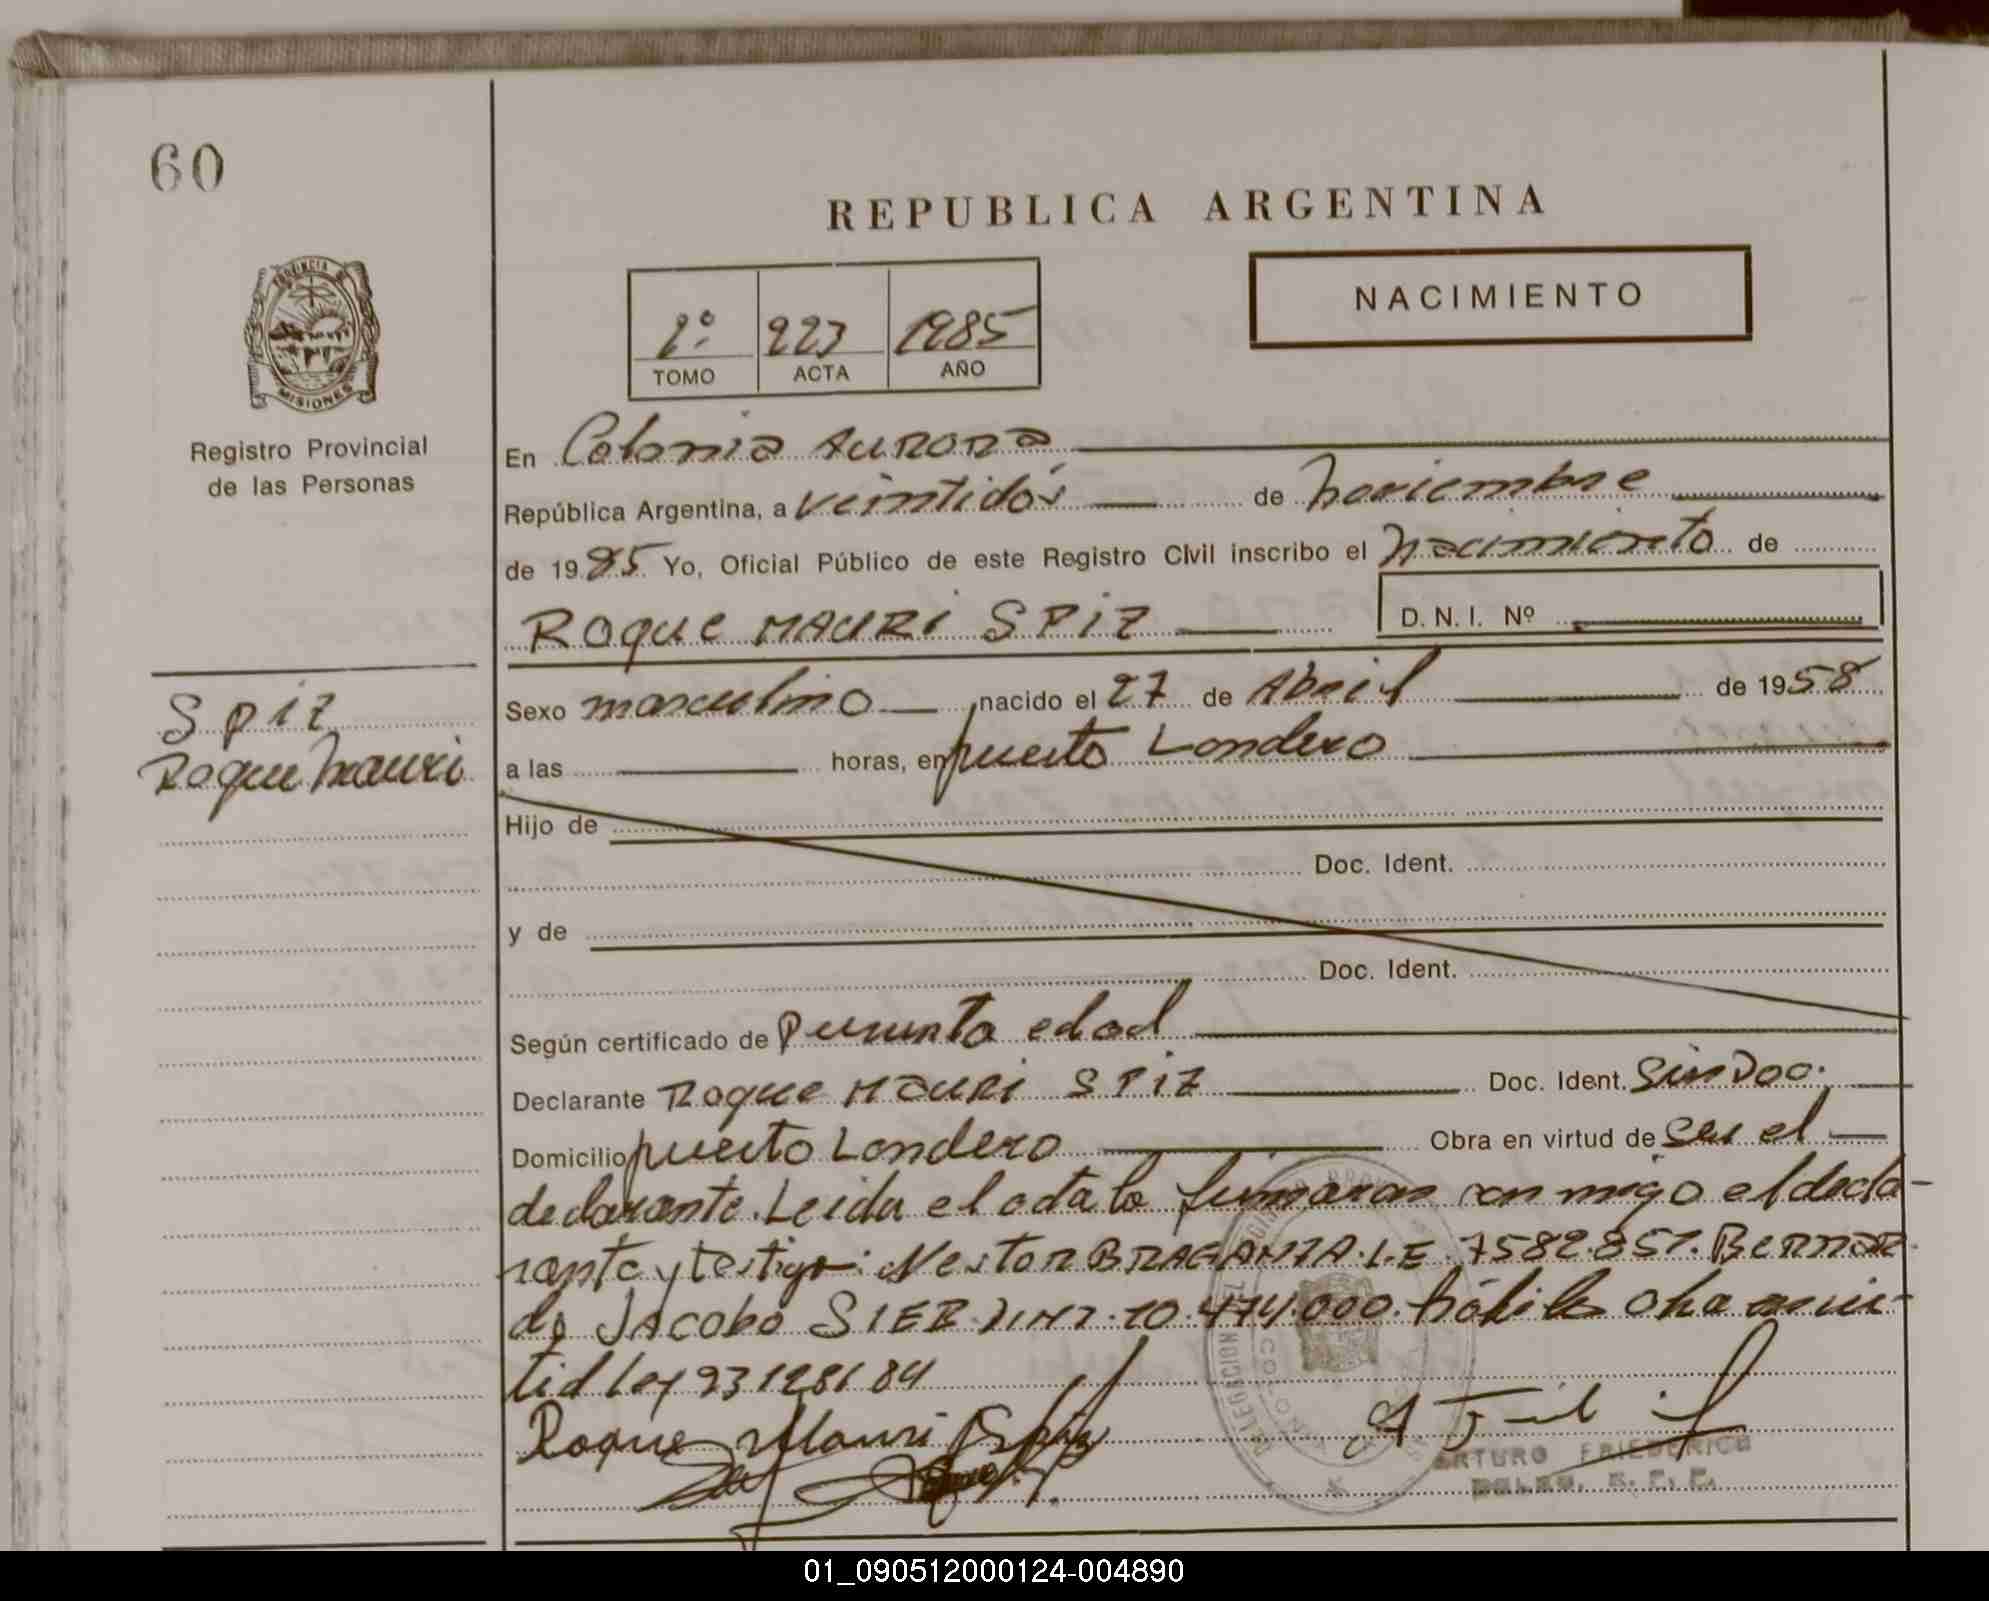 60
REPUBLICA ARGENTINA
PROVINCIA DE
MISIONES
NACIMIENTO
2º 223 1985
TOMO ACTA AÑO
Registro Provincial
de las Personas
En Colonia Aurora
República Argentina, a veintidós de noviembre
de 1985 Yo, Oficial Público de este Registro Civil inscribo el nacimiento de
Roque MAURI SPiZ D.N.I. Nº
SPiZ
Roque Mauri
Sexo masculino nacido el 27 de Abril de 1958
a las horas, en puerto Londero
Hijo de
Doc. Ident.
y de
Doc. Ident.
Según certificado de Presunta edad
Declarante Roque MAURI SPiZ Doc. Ident. Sin Doc.
Domicilio puerto Londero Obra en virtud de ser el
declarante. Leida el acta la firmaran con migo el decla-
rante y testigo: Nestor BRAGANZA. L.E. 7582.857. Bernar
do Jacobo SIEB D.N.I. 10.474.000. hábiles
ley 23128/84
Roque Mauri Spiz
ARTURO FRIEDERICH
DELEG. R. P. P.
01_090512000124-004890